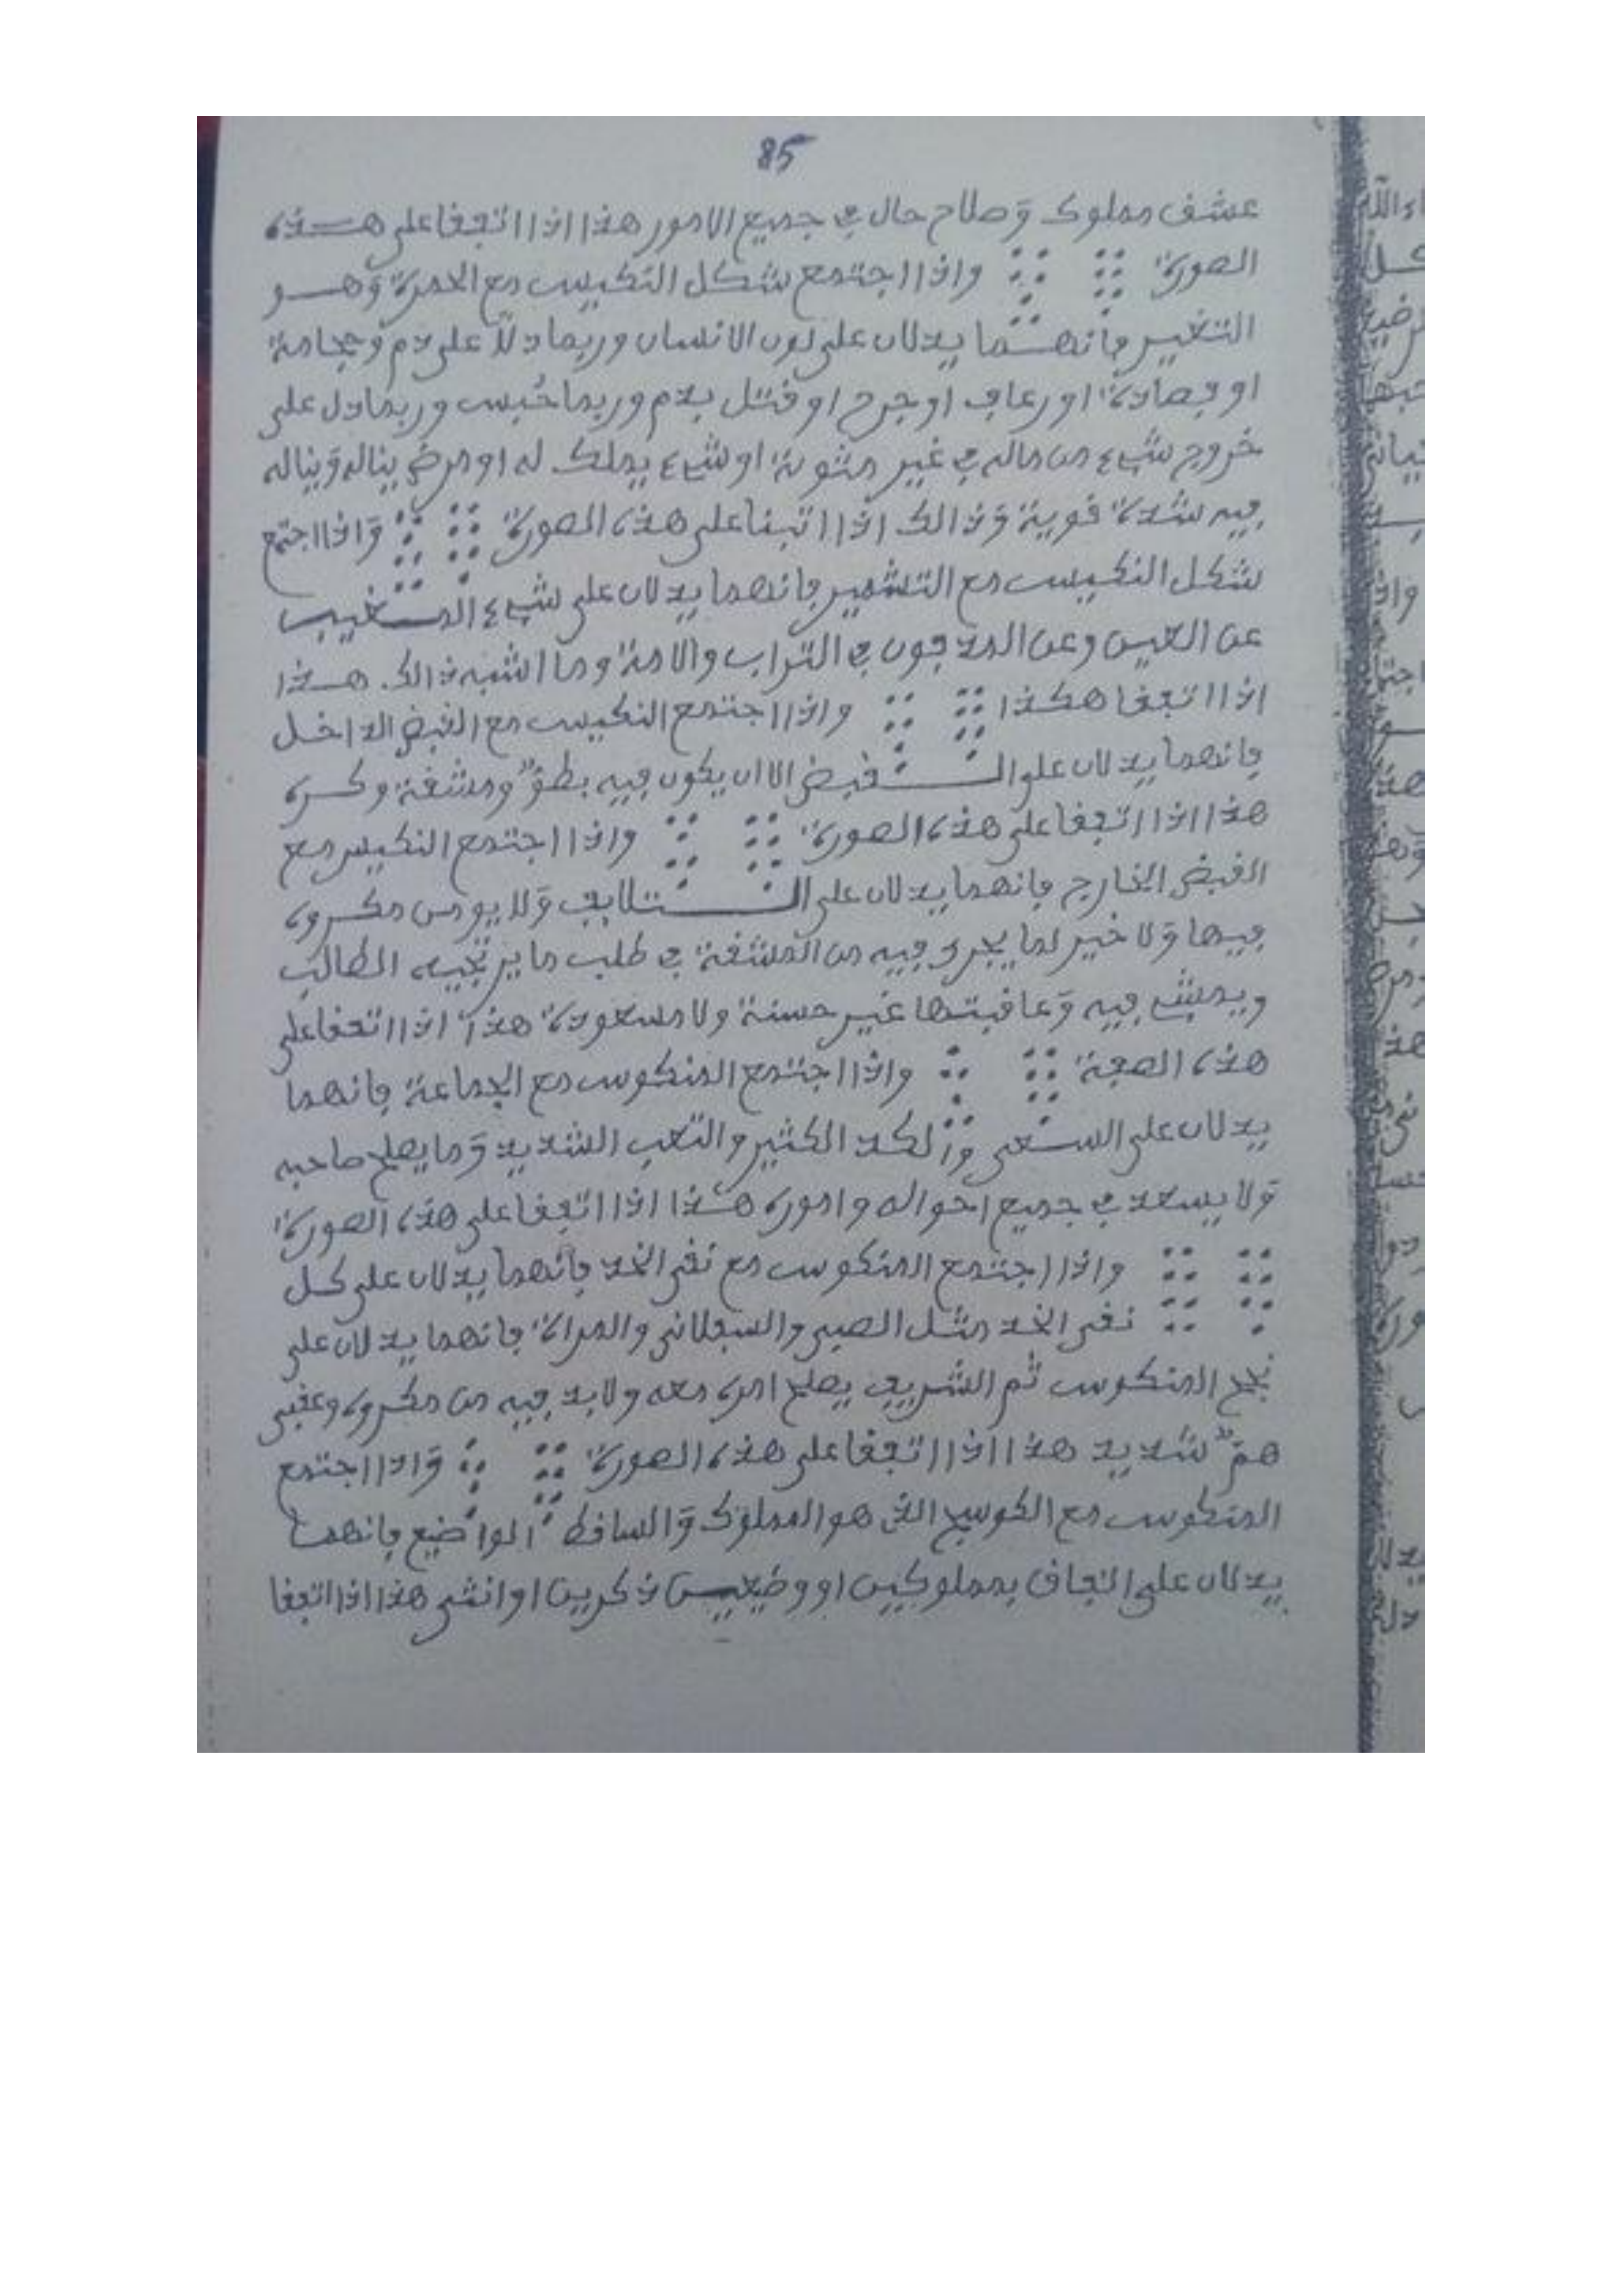 85
عشق مملوك وصلاح حال في جميع الامور هذا اذا اتفقا على هذه
الصورة واذا اجتمع شكل النكيس مع الحمرة وهو
التغيير فانهما يدلان على لون الانسان وربما دلا على دم وحجامة
او فصادة او رعاف او جرح او قتل بدم وربما حُبس وربما دل على
خروج شيء من ماله في غير مثوبة او شيء يملك له او مرض يناله ويناله
فيه شدة قوية وذالك اذا اتبنا على هذه الصورة واذا اجتمع
شكل النكيس مع التشمير فانهما يدلان على شيء المستغيب
عن العين وعن المدفون في التراب والامة وما اشبه ذالك هذا
اذا اتفقا هكذا واذا اجتمع النكيس مع القبض الداخل
فانهما يدلان على القبض الا ان يكون فيه بطؤ ومشقة وكره
هذا اذا اتفقا على هذه الصورة واذا اجتمع النكيس مع
القبض الخارج فانهما يدلان على التلاف ولا يومن مكروه
فيها ولا خير لما يجرى فيه من المشقة في طلب ما يرتجيه الطالب
ويمشي فيه وعاقبتها غير حسنة ولا مسعودة هذا اذا اتفقا على
هذه الصفة واذا اجتمع المنكوس مع الجماعة فانهما
يدلان على السعى والكد الكثير والتعب الشديد وما يصلح صاحبه
ولا يسعد في جميع احواله واموره هذا اذا اتفقا على هذه الصورة
واذا اجتمع المنكوس مع نقى الخد فانهما يدلان على كل
نقى الخد مثل الصبي والسفلاني والمراة فانهما يدلان على
المنكوس ثم الشريف يصلح امره معه ولا بد فيه من مكروه وعقبى
همّ شديد هذا اذا اتفقا على هذه الصورة واذا اجتمع
المنكوس مع الكوسج الذي هو المملوك والساقط الواضيع فانهما
يدلان على اتفاق بمملوكين او وضيعين ذكرين او انثى هذا اذا اتفقا